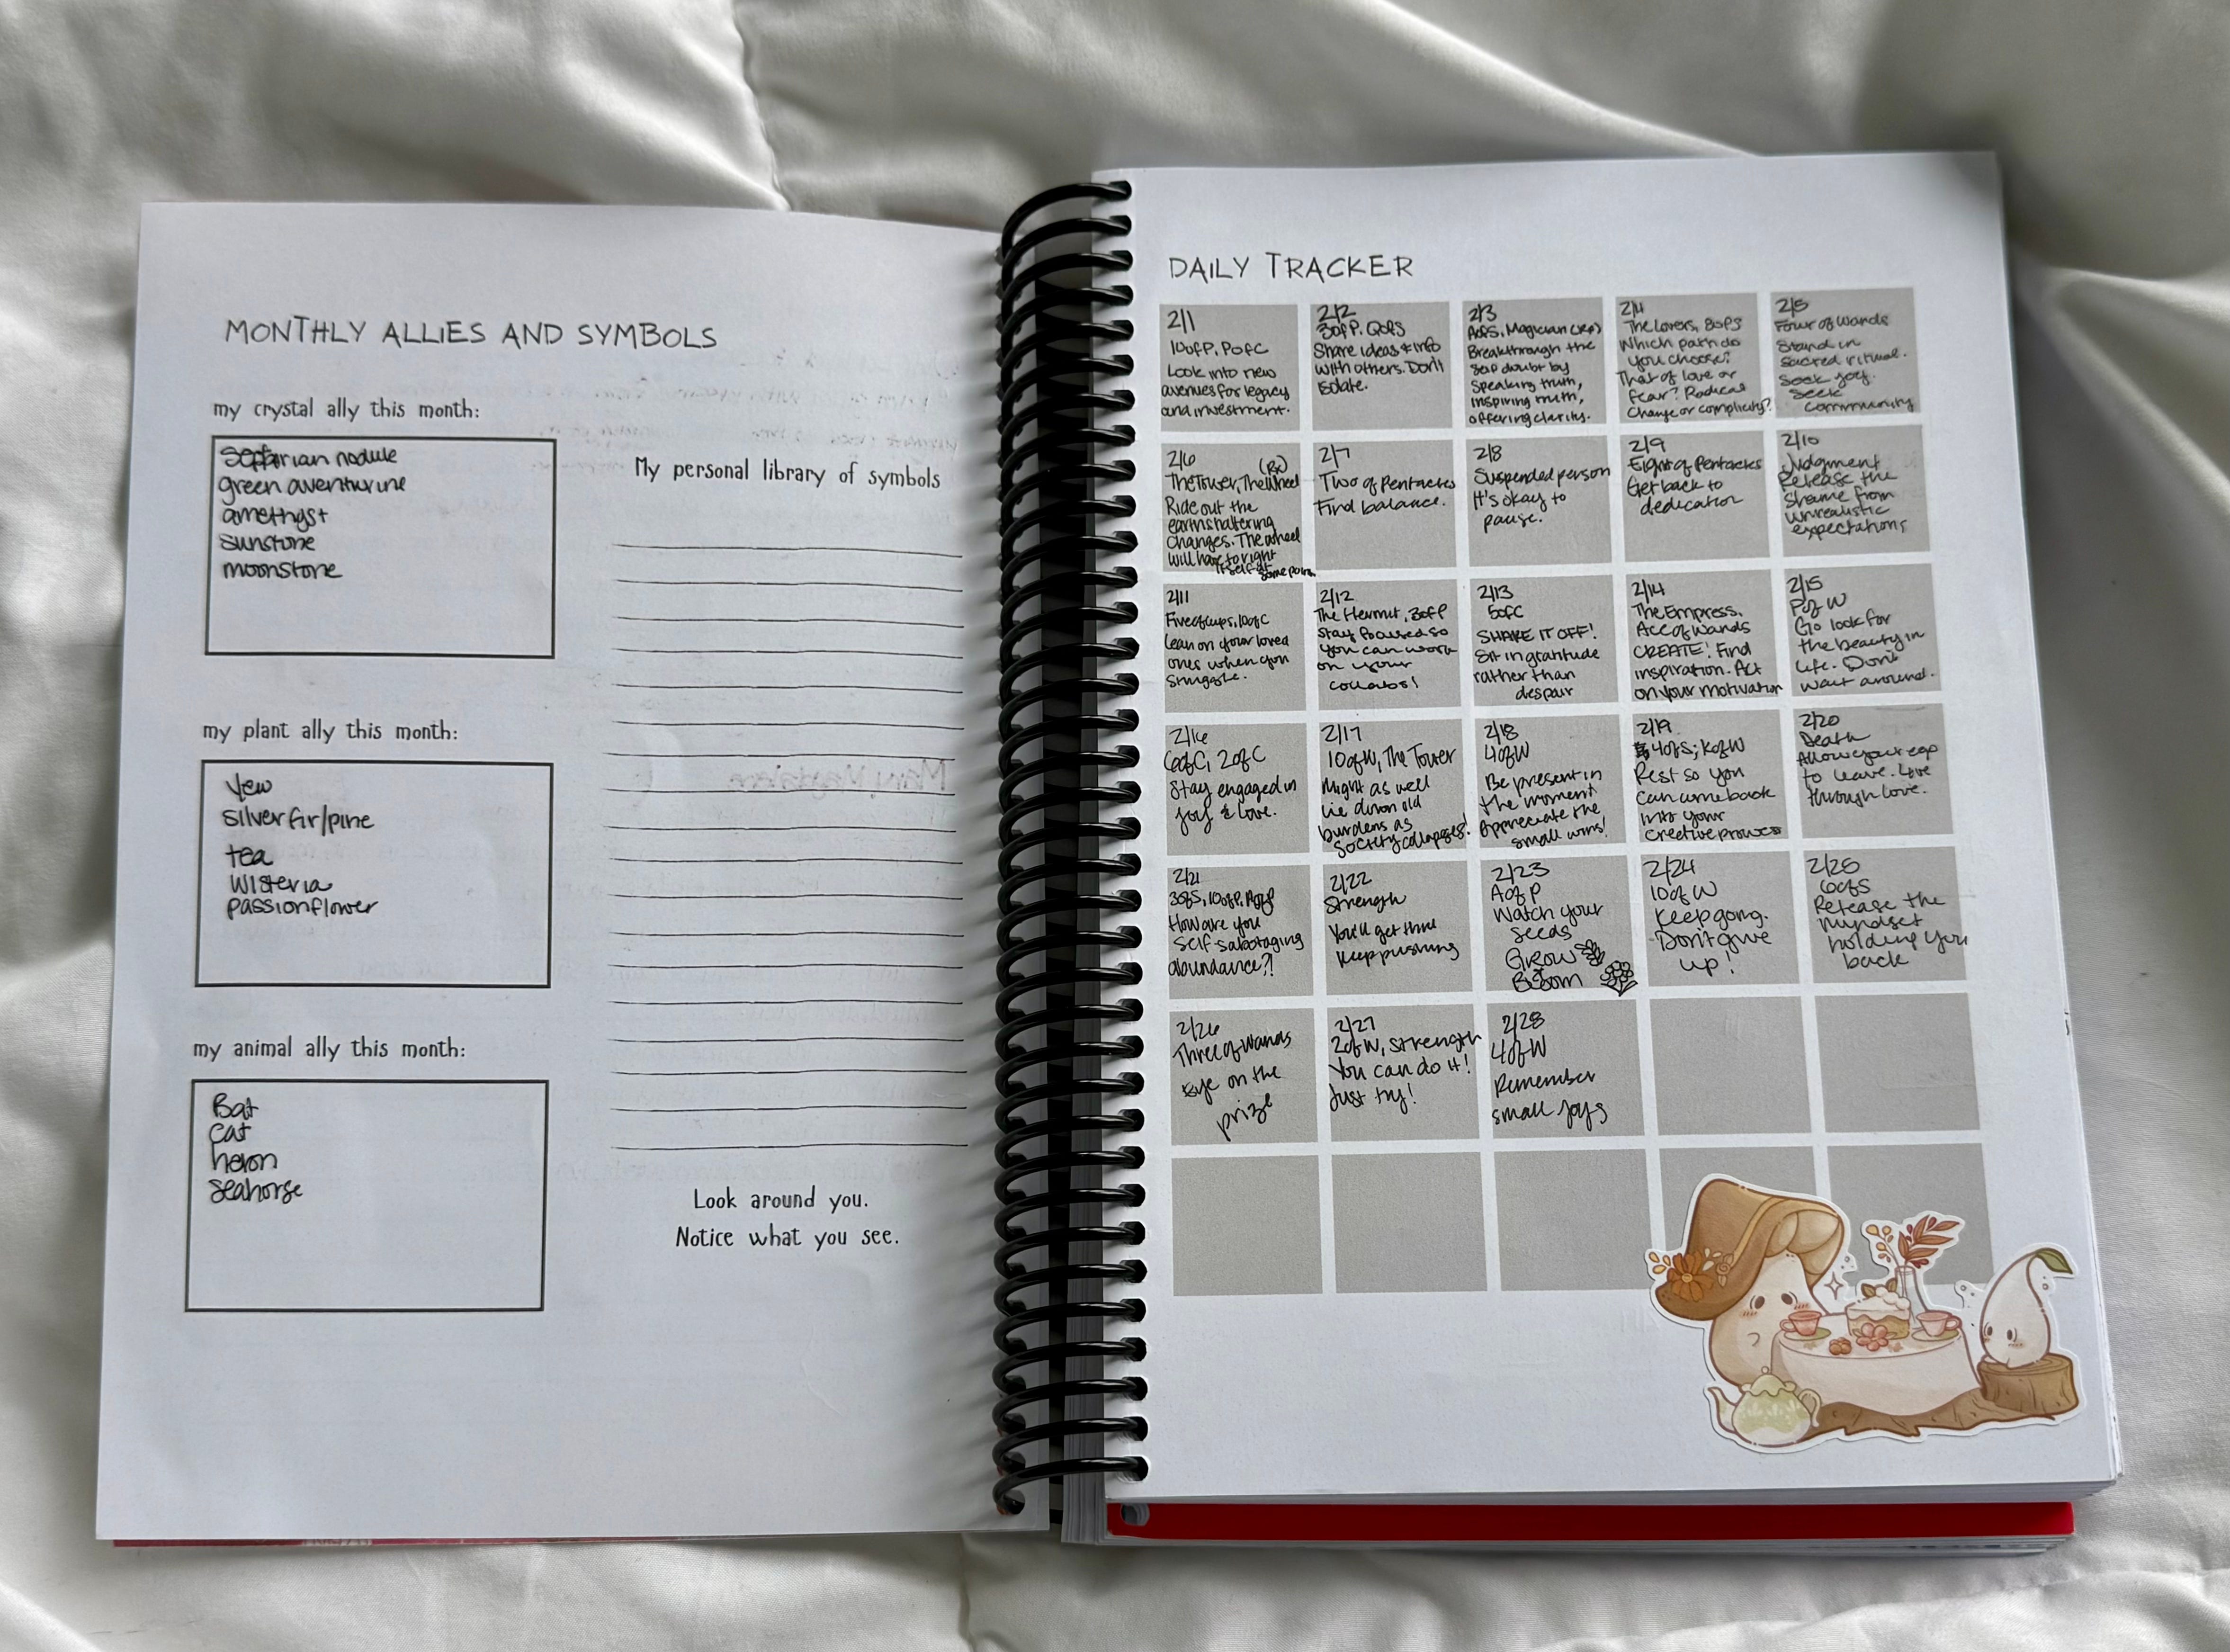 MONTHLY ALLIES AND SYMBOLS
my crystal ally this month:
Septarian nodule
green aventurine
amethyst
sunstone
moonstone
my plant ally this month:
Yew
silver fir/pine
tea
Wisteria
passionflower
my animal ally this month:
Bat
cat
heron
seahorse
My personal library of symbols
Look around you.
Notice what you see.
DAILY TRACKER
2/1
10ofP, PofC
Look into new
avenues for legacy
and investment.
2/2
3ofP, QofS
Share ideas + info
with others. Don't
isolate.
2/3
AofS, Magician (Rx)
Breakthrough the
self doubt by
speaking truth,
inspiring truth,
offering clarity.
2/4
The Lovers, 8ofS
Which path do
you choose?
That of love or
fear? Radical
Change or complicity?
2/5
Four of Wands
Stand in
sacred ritual.
Seek joy.
Seek
community
2/6
(Rx)
The Tower, The Wheel
Ride out the
earthshattering
changes. The wheel
will have to right
itself at
some point.
2/7
Two of Pentacles
Find balance.
2/8
Suspended person
It's okay to
pause.
2/9
Eight of Pentacles
Get back to
dedication
2/10
Judgment
Release the
shame from
unrealistic
expectations
2/11
Five of cups, 10ofC
Lean on your loved
ones when you
struggle.
2/12
The Hermit, 3ofP
Stay focused so
you can work
on your
collabs!
2/13
5ofC
SHAKE IT OFF!
Sit in gratitude
rather than
despair
2/14
The Empress,
Ace of Wands
CREATE! Find
inspiration. Act
on your motivation
2/15
PofW
Go look for
the beauty in
life. Don't
wait around.
2/16
6ofC, 2ofC
Stay engaged in
joy & love.
2/17
10ofW, The Tower
Might as well
lie down old
burdens as
society collapses!
2/18
4ofW
Be present in
the moment
Appreciate the
small wins!
2/19
4ofS; KofW
Rest so you
can come back
into your
creative prowess
2/20
Death
Allow your ego
to leave. Live
through love.
2/21
3ofS, 10ofP, AofP
How are you
self-sabotaging
abundance?!
2/22
Strength
You'll get thru
Keep pushing
2/23
AofP
Watch your
seeds
Grow
Bloom
2/24
10ofW
Keep going.
Don't give
up!
2/25
6ofS
Release the
mindset
holding you
back
2/26
Three of Wands
Eye on the
prize
2/27
2ofW, Strength
You can do it!
Just try!
2/28
4ofW
Remember
small joys